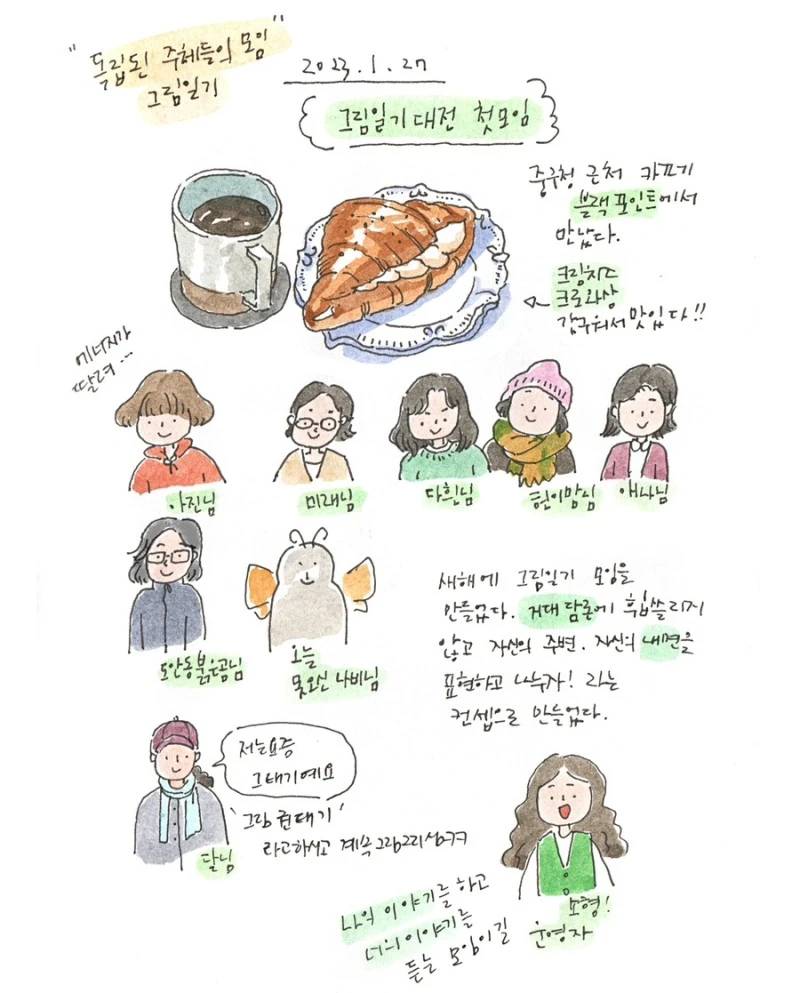 "독립된 주체들의 모임"
그림일기
2023.1.27
그림일기대전 첫모임
중구청 근처 카페
블랙포인트에서
만났다.
크림치즈
크로와상
갓구워서 맛있다!!
에너지가
딸려...
아진님
미래님
다흰님
애나님
도안동붉은곰님
오늘
못오신 나비님
새해에 그림일기 모임을
만들었다. 거대 담론에 휩쓸리지
않고 자신의 주변. 자신의 내면을
표현하고 나누자! 라는
컨셉으로 만들었다.
저는요즘
그래기예요
라고하시고 계속
달님
소형!
운영자
나의 이야기를 하고
너의 이야기를
듣는 모임이길